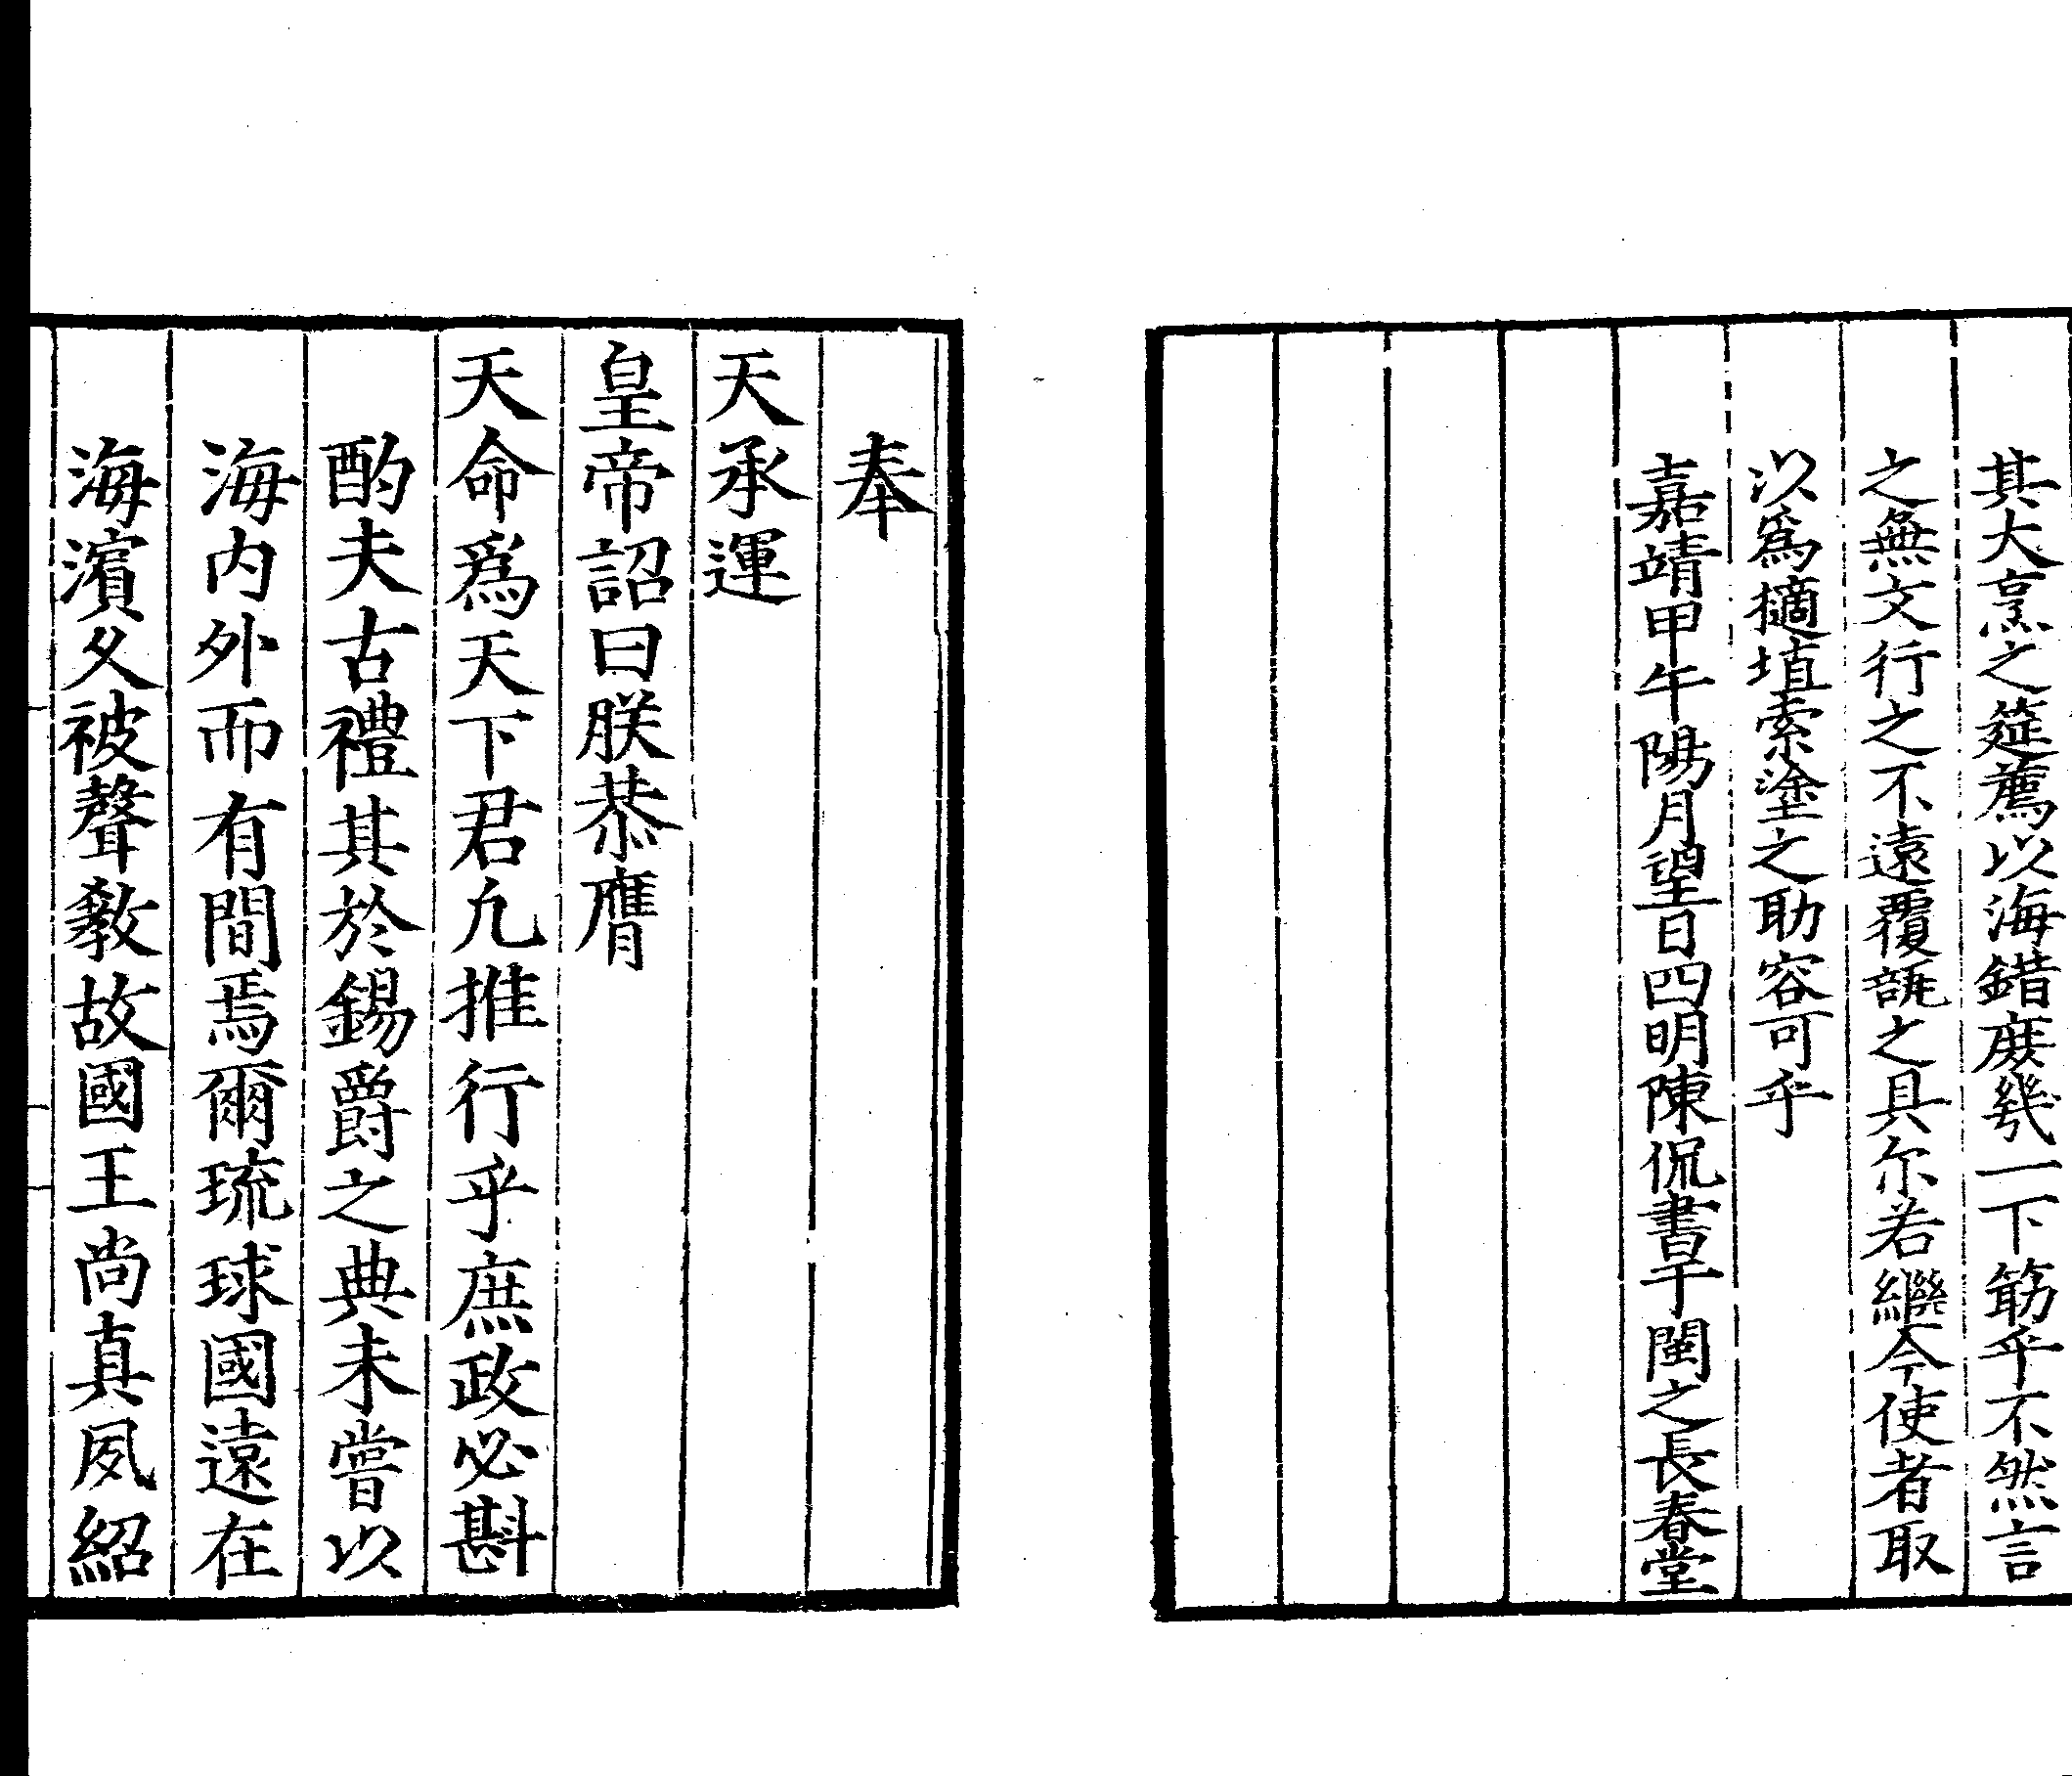 其大烹之筵薦以海錯庻幾一下筯乎不然言
之無文行之不遠覆瓿之具尔若繼今使者取
以爲擿埴索塗之助容可乎
嘉靖甲午陽月望日四明陳侃書于閩之長春堂
奉
天承運
皇帝詔曰朕恭膺
天命爲天下君凢推行乎庶政必斟
酌夫古禮其於錫爵之典未嘗以
海内外而有間焉爾琉球國遠在
海濵乆被聲敎故國王尚真夙紹